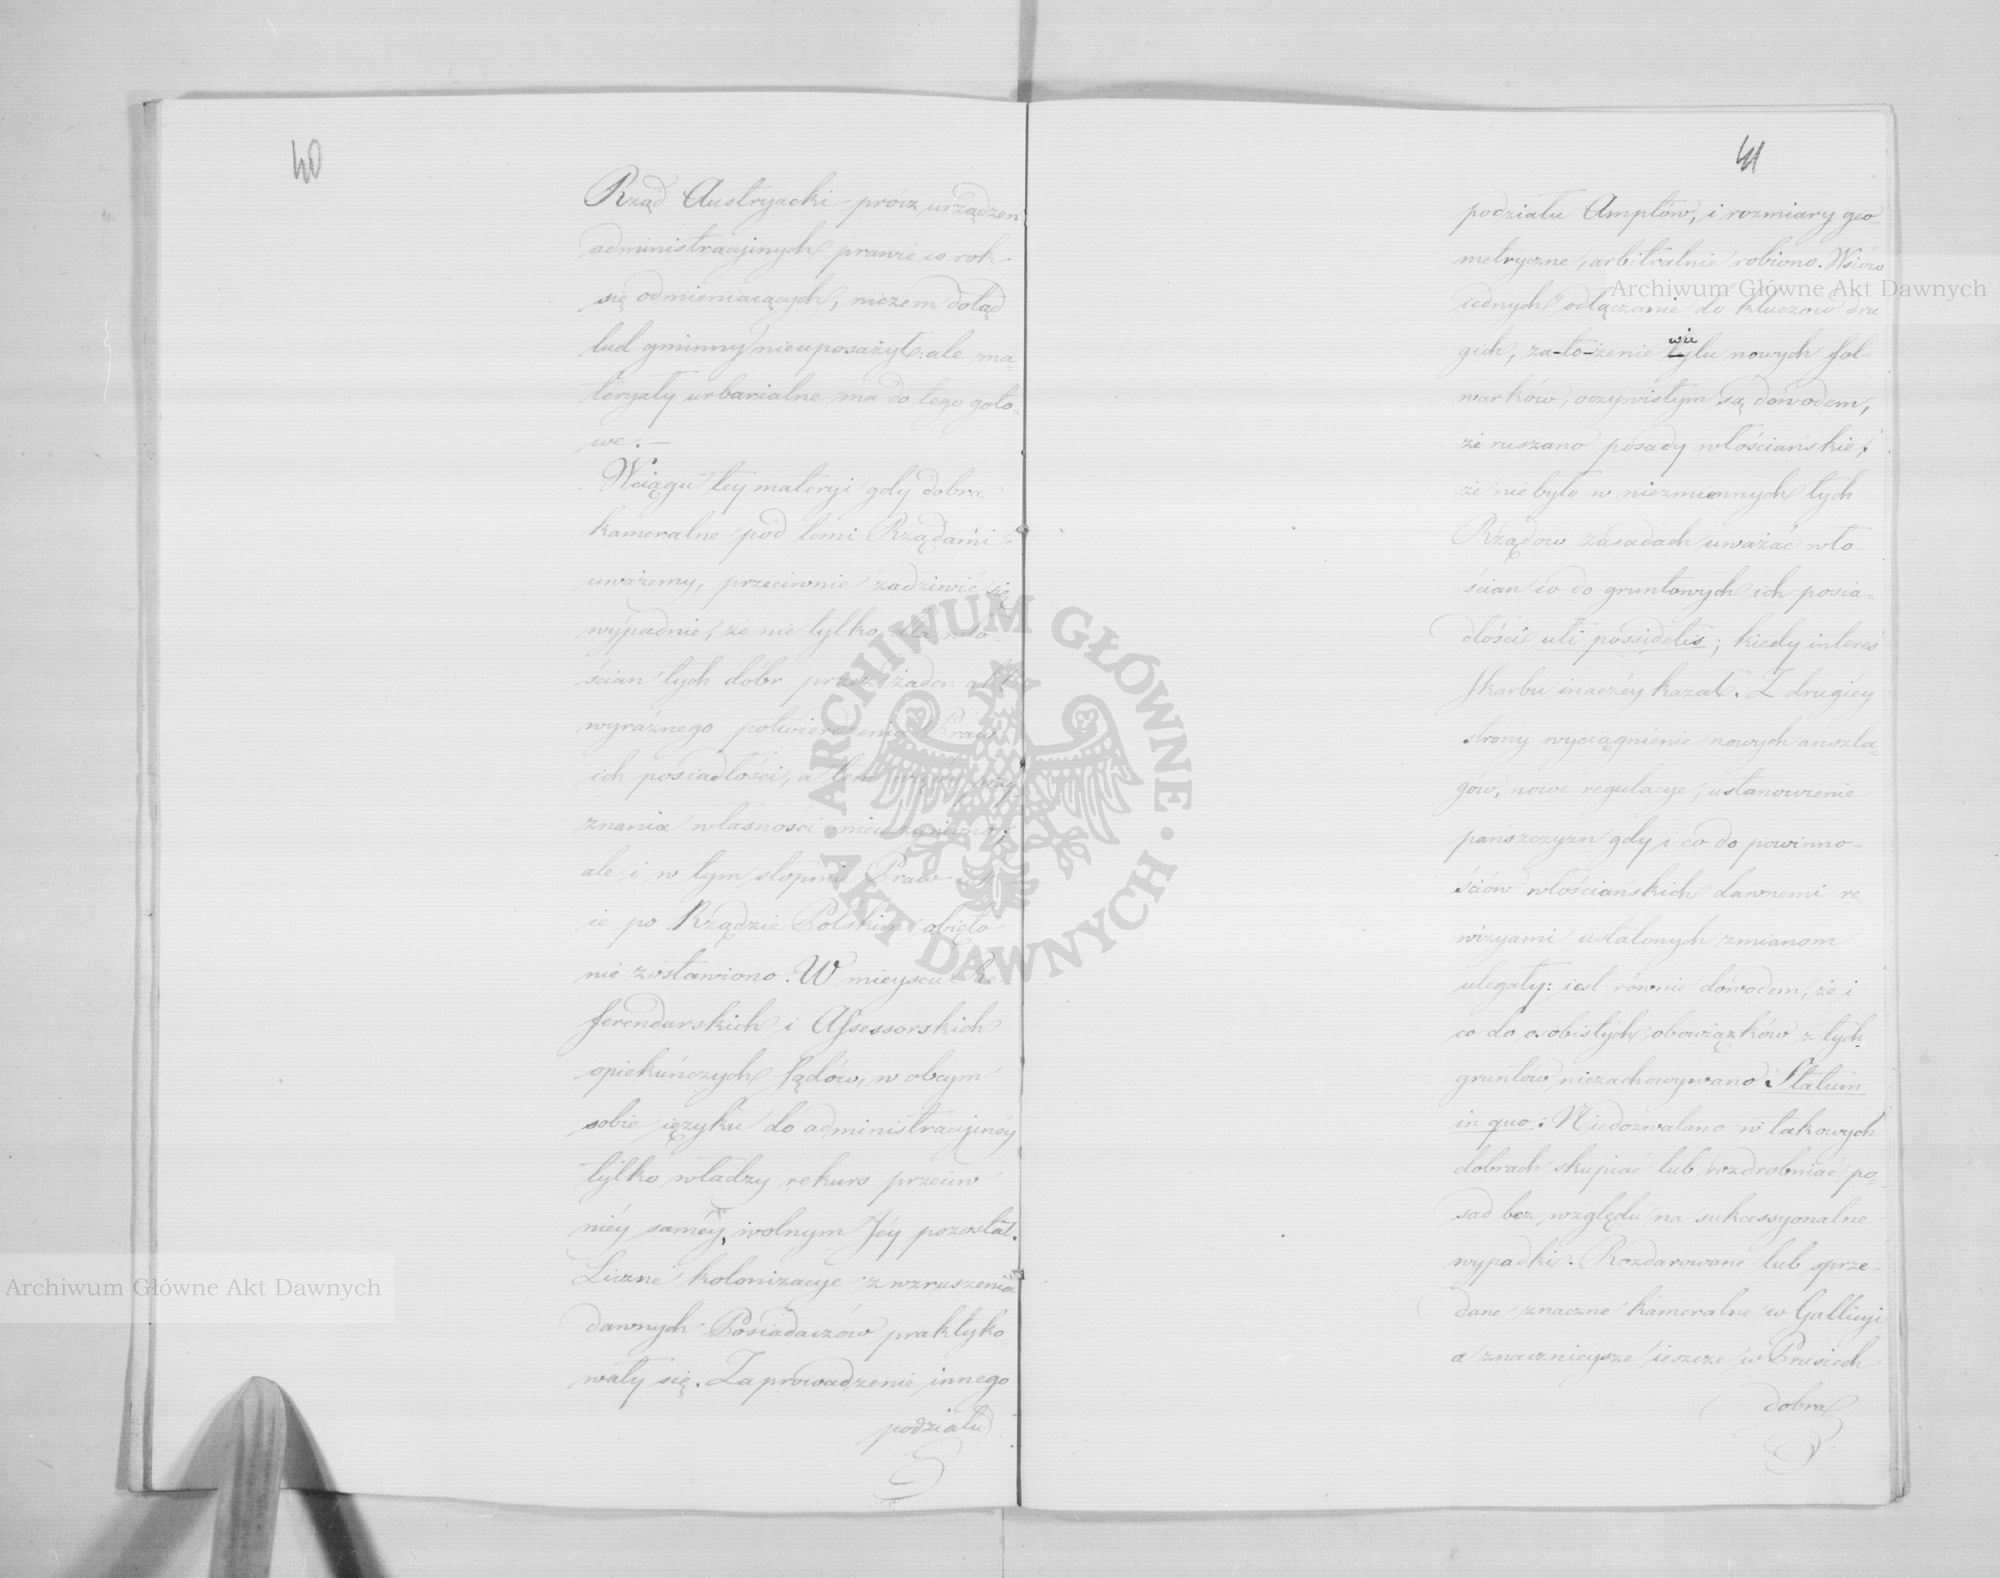 40
Rząd Austryacki prócz urządzeń
administracyjnych prawie co rok
się odmieniaiących, niczem dotąd
lud gminny nieuposażył: ale ma-
teryały urbarialne ma do tego goto-
we. —
Wciągu tey materyi gdy dobra
kameralne pod temi Rządami
uważemy, przeciwnie zadziwić się
wypadnie, że nie tylko dla wło-
ścian tych dóbr przez żaden akt
wyraźnego potwierdzenia Praw
ich posiadłości, a tem więcéy przy
znania własności nieuczyniono;
ale i w tym stopniu Praw
ie po Rządzie Polskim obięto
nie zostawiono. W mieyscu Re-
ferendarskich i Assessorskich
opiekuńczych sądów, w obcym
sobie ięzyku do administracyinéy
tylko władzy rekurs przeciw
niéy saméy, wolnym Jéy pozostał.
Liczne kolonizacye z wzruszenia
dawnych Posiadaczów praktyko-
wały się. Zaprowadzenie innego
podziału
41
podziału Amptów, i rozmiary geo-
metryczne, arbitralnie robiono. Wsiów
iednych odłączanie do kluczow dru
gich, za-ło-żenie tylu nowych fol-
wie
warków, oczywistym są dowodem,
że ruszano posady włościańskie;
że nie było w niezmiennych tych
Rządow zasadach uważać wło-
ścian co do gruntowych ich posia-
dłości uti possidetis; kiedy interes
skarbu inaczéy kazał. Z drugiéy
strony wyciągnienie nowych anszla-
gów, nowe regulacye, ustanowienie
pańszczyzn gdy i co do powinno-
ściów włościańskich dawnemi re-
wizyami ustalonych zmianom
ulegały: iest równie dowodem, że i
co do osobistych obowiązków z tych
gruntów niezachowywano Statum
in quo: Niedozwalano w takowych
dobrach skupiać lub rozdrobniać po-
sad bez względu na sukcessyonalne
wypadki. Rozdarowane lub sprze-
dane znaczne kameralne w Gallicyi
a znacznieysze ieszcze w Prusiech
dobra
Archiwum Główne Akt Dawnych
Archiwum Główne Akt Dawnych
ARCHIWUM GŁÓWNE AKT DAWNYCH